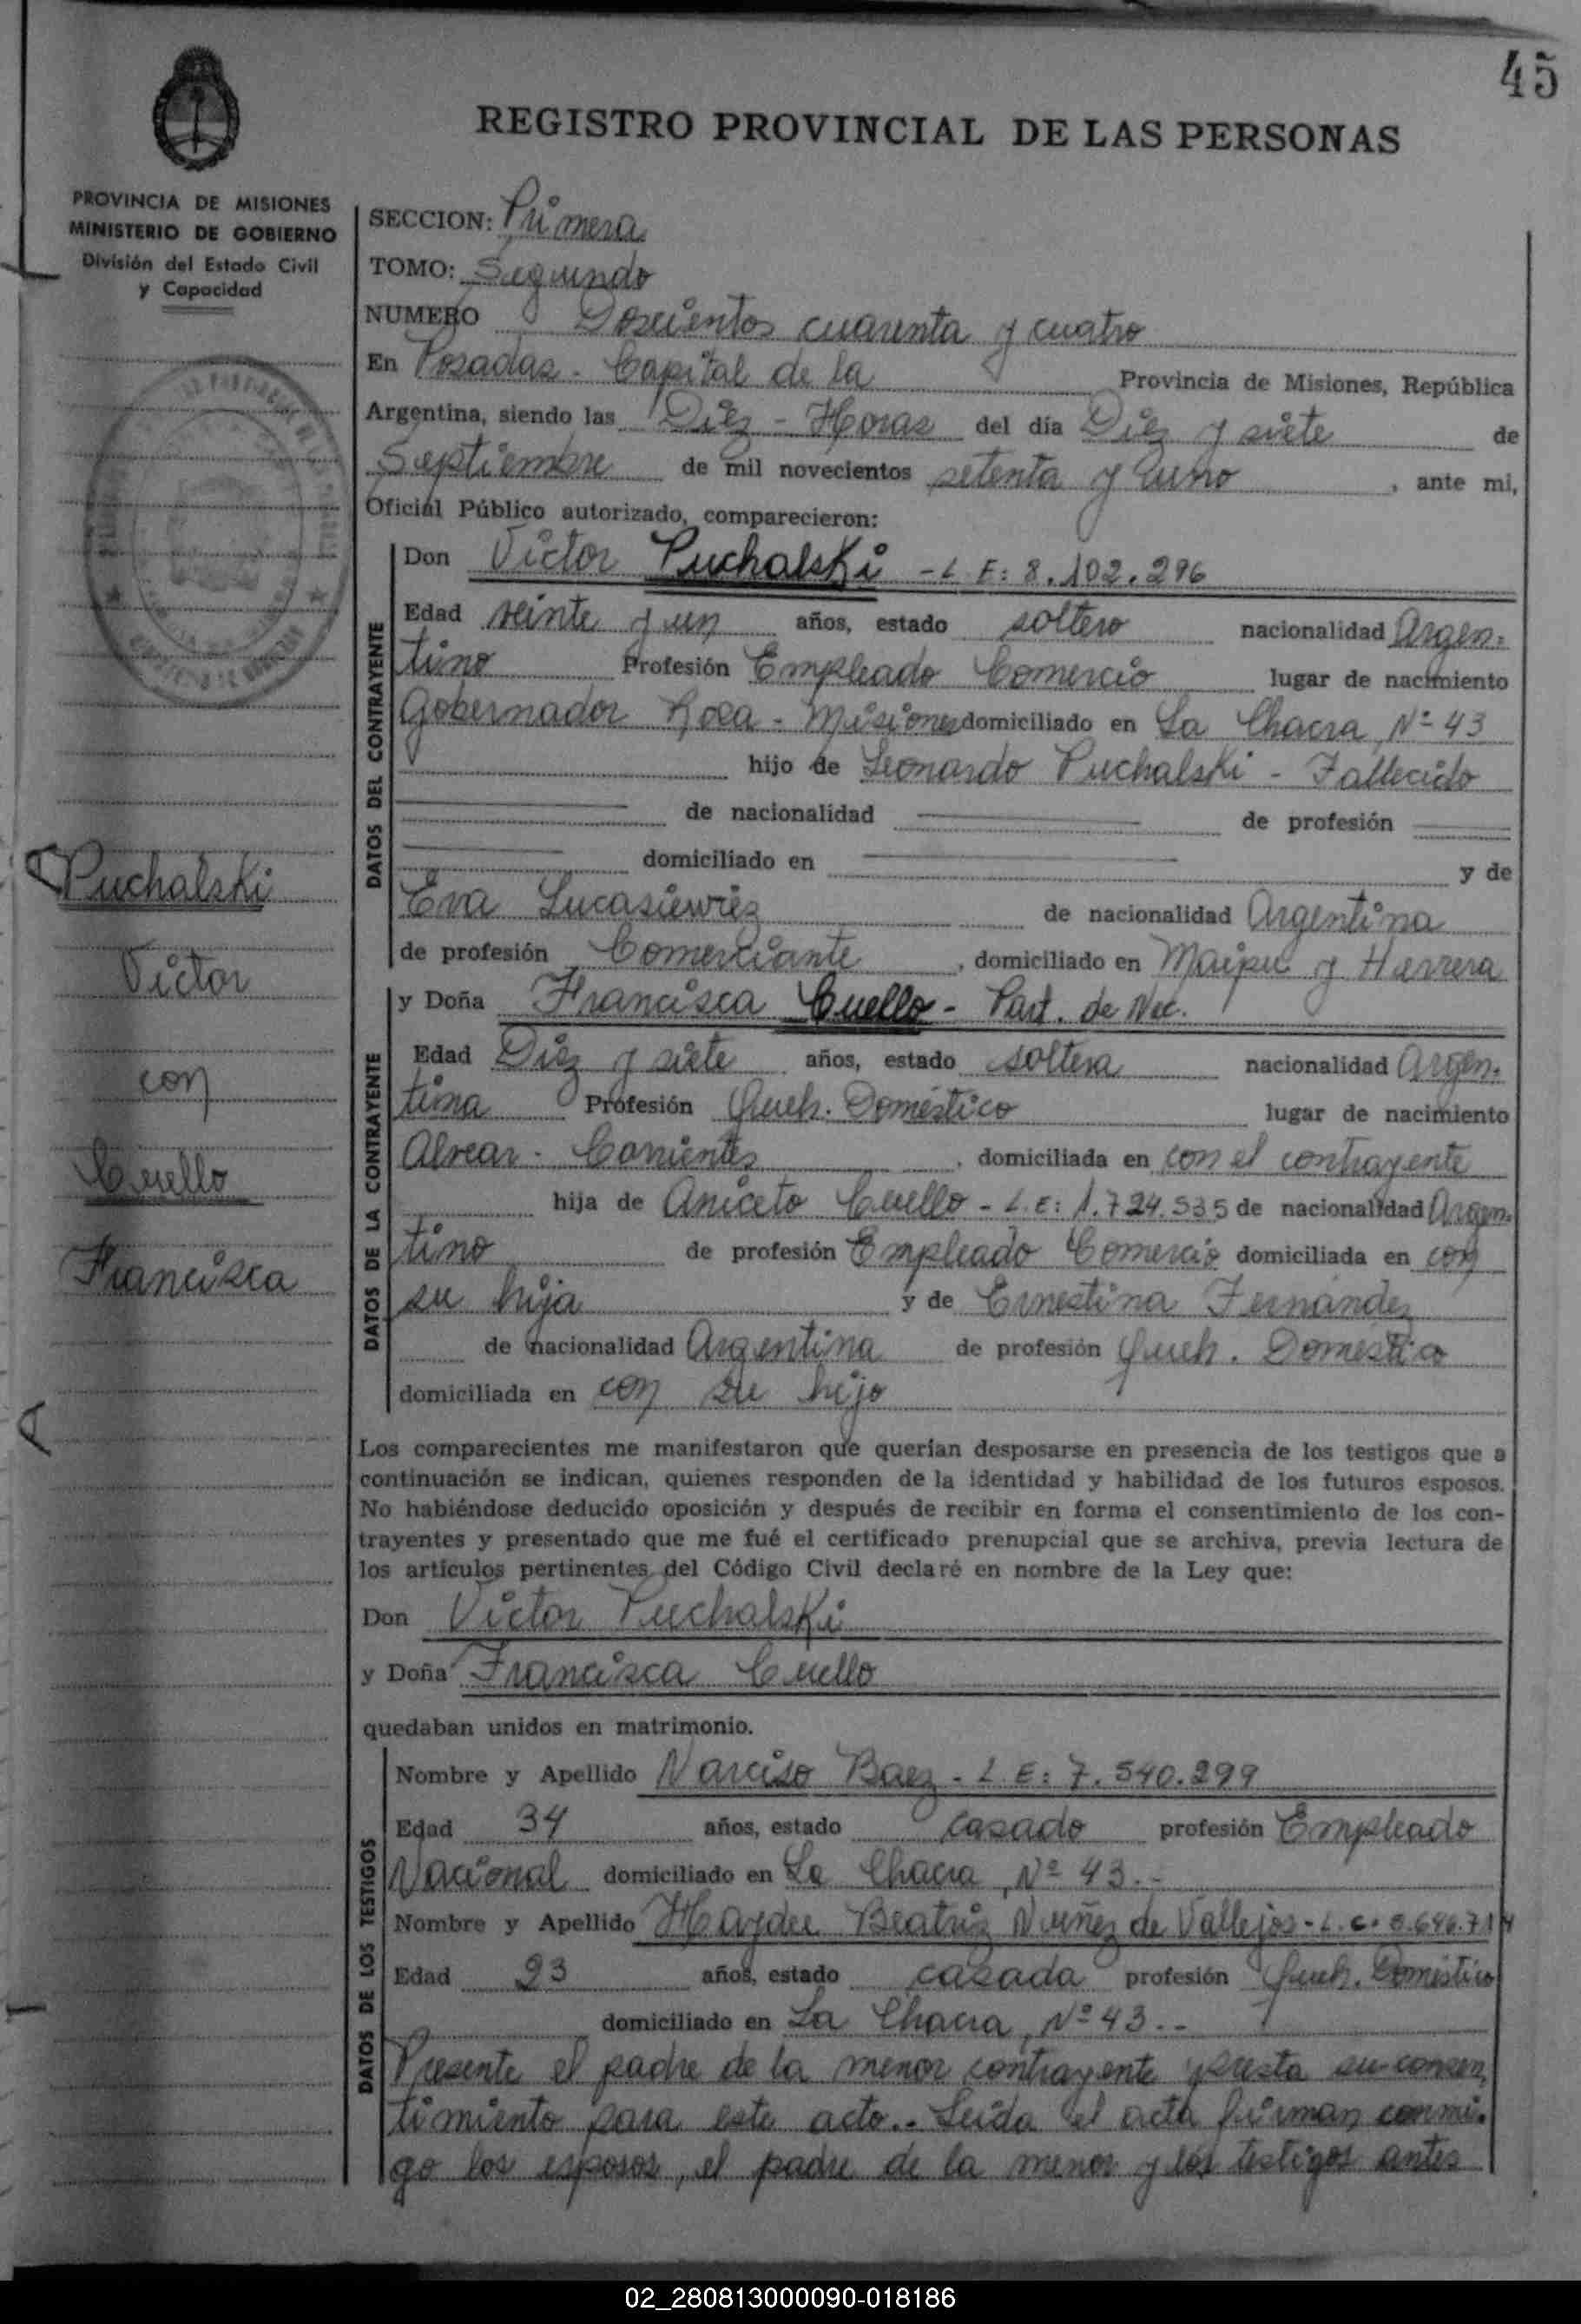 45
REGISTRO PROVINCIAL DE LAS PERSONAS
PROVINCIA DE MISIONES
MINISTERIO DE GOBIERNO
División del Estado Civil
y Capacidad
SECCION: Primera
TOMO: Segundo
NUMERO Doscientos cuarenta y cuatro
En Posadas - Capital de la Provincia de Misiones, República
Argentina, siendo las Diez - Horas del día Diez y siete de
Septiembre de mil novecientos setenta y uno, ante mi,
Oficial Público autorizado, comparecieron:
DATOS DEL CONTRAYENTE
Don Victor Puchalski - L E: 8.102.296
Edad veinte y un años, estado soltero nacionalidad Argen-
tino Profesión Empleado Comercio lugar de nacimiento
Gobernador Roca - Misiones domiciliado en La Chacra Nº 43
hijo de Leonardo Puchalski - Fallecido
de nacionalidad de profesión
domiciliado en y de
Eva Lucasiewriez de nacionalidad Argentina
de profesión Comerciante, domiciliado en Maipu y Herrera
Puchalski
Victor
con
Cuello
Francisca
DATOS DE LA CONTRAYENTE
y Doña Francisca Cuello - Part. de Nac.
Edad Diez y siete años, estado soltera nacionalidad Argen-
tina Profesión Queh. Doméstico lugar de nacimiento
Alvear - Corrientes, domiciliada en con el contrayente
hija de Aniceto Cuello - L.E: 1.724.535 de nacionalidad Argen-
tino de profesión Empleado Comercio domiciliada en con
su hija y de Ernestina Fernández
de nacionalidad Argentina de profesión Queh. Domestico
domiciliada en con su hijo
Los comparecientes me manifestaron que querían desposarse en presencia de los testigos que a
continuación se indican, quienes responden de la identidad y habilidad de los futuros esposos.
No habiéndose deducido oposición y después de recibir en forma el consentimiento de los con-
trayentes y presentado que me fué el certificado prenupcial que se archiva, previa lectura de
los artículos pertinentes del Código Civil declaré en nombre de la Ley que:
Don Victor Puchalski
y Doña Francisca Cuello
quedaban unidos en matrimonio.
DATOS DE LOS TESTIGOS
Nombre y Apellido Narciso Baez - L E: 7.540.299
Edad 34 años, estado casado profesión Empleado
Nacional domiciliado en La Chacra, Nº 43.-
Nombre y Apellido Haydee Beatriz Nuñez de Vallejos - L.C.
Edad 23 años, estado casada profesión Queh. Doméstico
domiciliado en La Chacra, Nº 43.-
Presente el padre de la menor contrayente y presta su consen-
timiento para este acto.- Leída el acta firman conmi-
go los esposos, el padre de la menor y los testigos antes
02_280813000090-018186